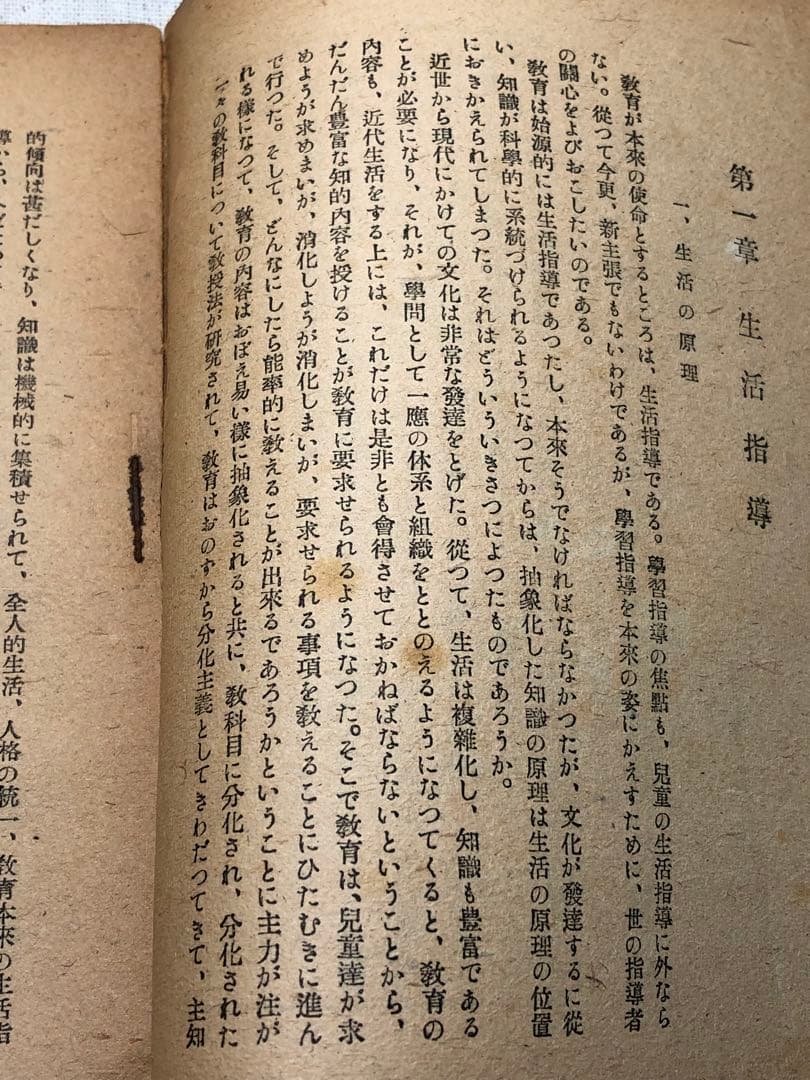 第一章 生活指導
一、生活の原理
教育が本來の使命とするところは、生活指導である。學習指導の焦點も、兒童の生活指導に外なら
ない。從つて今更、新主張でもないわけであるが、學習指導を本來の姿にかえすために、世の指導者
の關心をよびおこしたいのである。
教育は始源的には生活指導であつたし、本來そうでなければならなかつたが、文化が發達するに從
い、知識が科學的に系統づけられるようになつてからは、抽象化した知識の原理は生活の原理の位置
におきかえられてしまつた。それはどういういきさつによつたものであろうか。
近世から現代にかけての文化は非常な發達をとげた。從つて、生活は複雜化し、知識も豊富である
ことが必要になり、それが、學問として一應の休系と組織をととのえるようになつてくると、教育の
内容も、近代生活をする上には、これだけは是非とも會得させておかねばならないということから、
だんだん豊富な知的内容を授けることが教育に要求せられるようになつた。そこで教育は、兒童達が求
めようが求めまいが、消化しようが消化しまいが、要求せられる事項を教えることにひたむきに進ん
で行つた。そして、どんなにしたら能率的に教えることが出來るであろうかということに主力が注が
れる樣になつて、教育の内容はおぼえ易い樣に抽象化されると共に、教科目に分化され、分化された
々の教科目について教授法が研究されて、教育はおのずから分化主義としてきわだつてきて、主知
的傾向は甚だしくなり、知識は機械的に集積せられて、全人的生活、人格の統一、教育本來の生活指